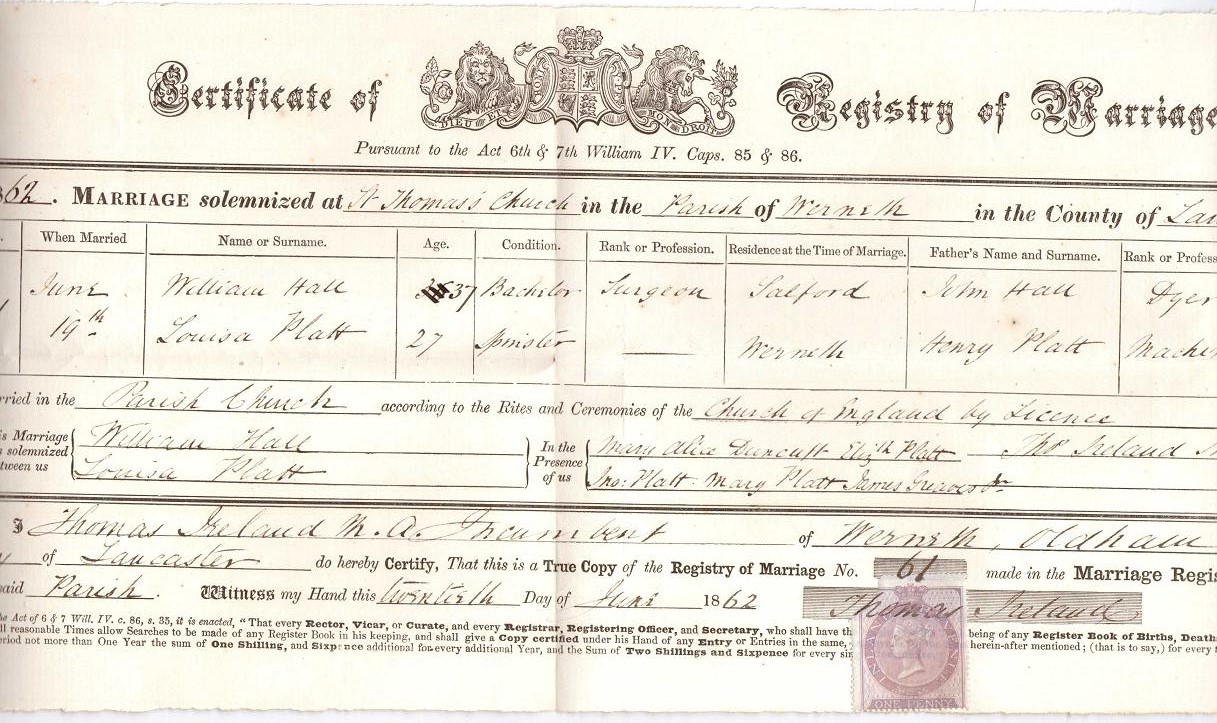 Certificate of Registry of Marriage
DIEU ET MON DROIT
Pursuant to the Act 6th & 7th William IV. Caps. 85 & 86.
62. MARRIAGE solemnized at St Thomas's Church in the Parish of Werneth in the County of Lan
When Married Name or Surname. Age. Condition. Rank or Profession. Residence at the Time of Marriage. Father's Name and Surname. Rank or Profess
June William Hall 37 Bachelor Surgeon Salford John Hall Dyer
19th Louisa Platt 27 Spinster — Werneth Henry Platt Machin
rried in the Parish Church according to the Rites and Ceremonies of the Church of England by Licence
is Marriage William Hall In the Mary Alice Duncuft Elizth Platt — Thos Ireland
s solemnized Presence
tween us Louisa Platt of us Jno: Platt Mary Platt James Greaves Jr
I Thomas Ireland M.A. Incumbent of Werneth, Oldham
y of Lancaster do hereby Certify, That this is a True Copy of the Registry of Marriage No. 61 made in the Marriage Regis
aid Parish. Witness my Hand this twentieth Day of June 1862 Thomas Ireland
he Act of 6 & 7 Will. IV. c. 86, s. 35, it is enacted, "That every Rector, Vicar, or Curate, and every Registrar, Registering Officer, and Secretary, who shall have th being of any Register Book of Births, Death
ll reasonable Times allow Searches to be made of any Register Book in his keeping, and shall give a Copy certified under his Hand of any Entry or Entries in the same, herein-after mentioned; (that is to say,) for every
eriod not more than One Year the sum of One Shilling, and Sixpence additional for every additional Year, and the Sum of Two Shillings and Sixpence for every sin
ONE PENNY